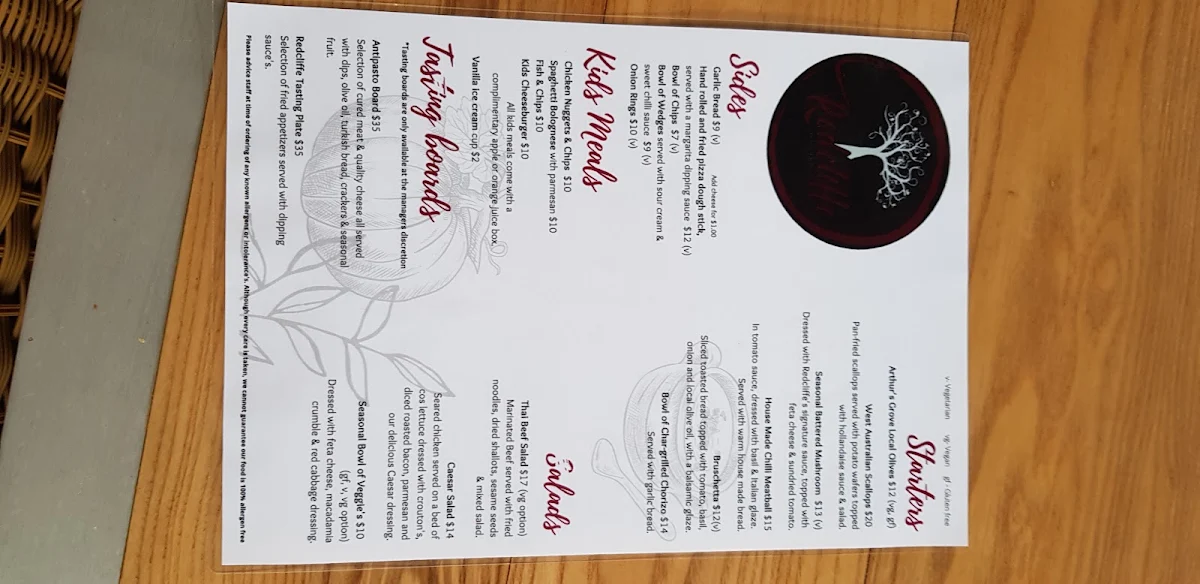 Redcliffe
v- Vegetarian vg- Vegan gf - Gluten free
Starters
Arthur's Grove Local Olives $12 (vg, gf)
West Australian Scallops $20
Pan-fried scallops served with potato wafers topped
with hollandaise sauce & salad.
Seasonal Battered Mushroom $13 (v)
Dressed with Redcliffe's signature sauce, topped with
feta cheese & sundried tomato.
House Made Chilli Meatball $15
In tomato sauce, dressed with basil & Italian glaze.
Served with warm house made bread.
Bruschetta $12(v)
Sliced toasted bread topped with tomato, basil,
onion and local olive oil, with a balsamic glaze.
Bowl of Char-grilled Chorizo $14
Served with garlic bread.
Sides
Garlic Bread $9 (v) Add cheese for $1.00
Hand rolled and fried pizza dough stick,
served with a margarita dipping sauce $12 (v)
Bowl of Chips $7 (v)
Bowl of Wedges served with sour cream &
sweet chilli sauce $9 (v)
Onion Rings $10 (v)
Kids Meals
Chicken Nuggets & Chips $10
Spaghetti Bolognese with parmesan $10
Fish & Chips $10
Kids Cheeseburger $10
All kids meals come with a
complimentary apple or orange juice box.
Vanilla ice cream cup $2
Salads
Thai Beef Salad $17 (vg option)
Marinated Beef served with fried
noodles, dried shallots, sesame seeds
& mixed salad.
Caesar Salad $14
Seared chicken served on a bed of
cos lettuce dressed with crouton's,
diced roasted bacon, parmesan and
our delicious Caesar dressing.
Seasonal Bowl of Veggie's $10
(gf, v, vg option)
Dressed with feta cheese, macadamia
crumble & red cabbage dressing.
Tasting boards
*Tasting boards are only available at the managers discretion
Antipasto Board $35
Selection of cured meat & quality cheese all served
with dips, olive oil, turkish bread, crackers & seasonal
fruit.
Redcliffe Tasting Plate $35
Selection of fried appetizers served with dipping
sauce's.
Please advice staff at time of ordering of any known allergens or intolerance's. Although every care is taken, we cannot guarantee our food is 100% allergen free